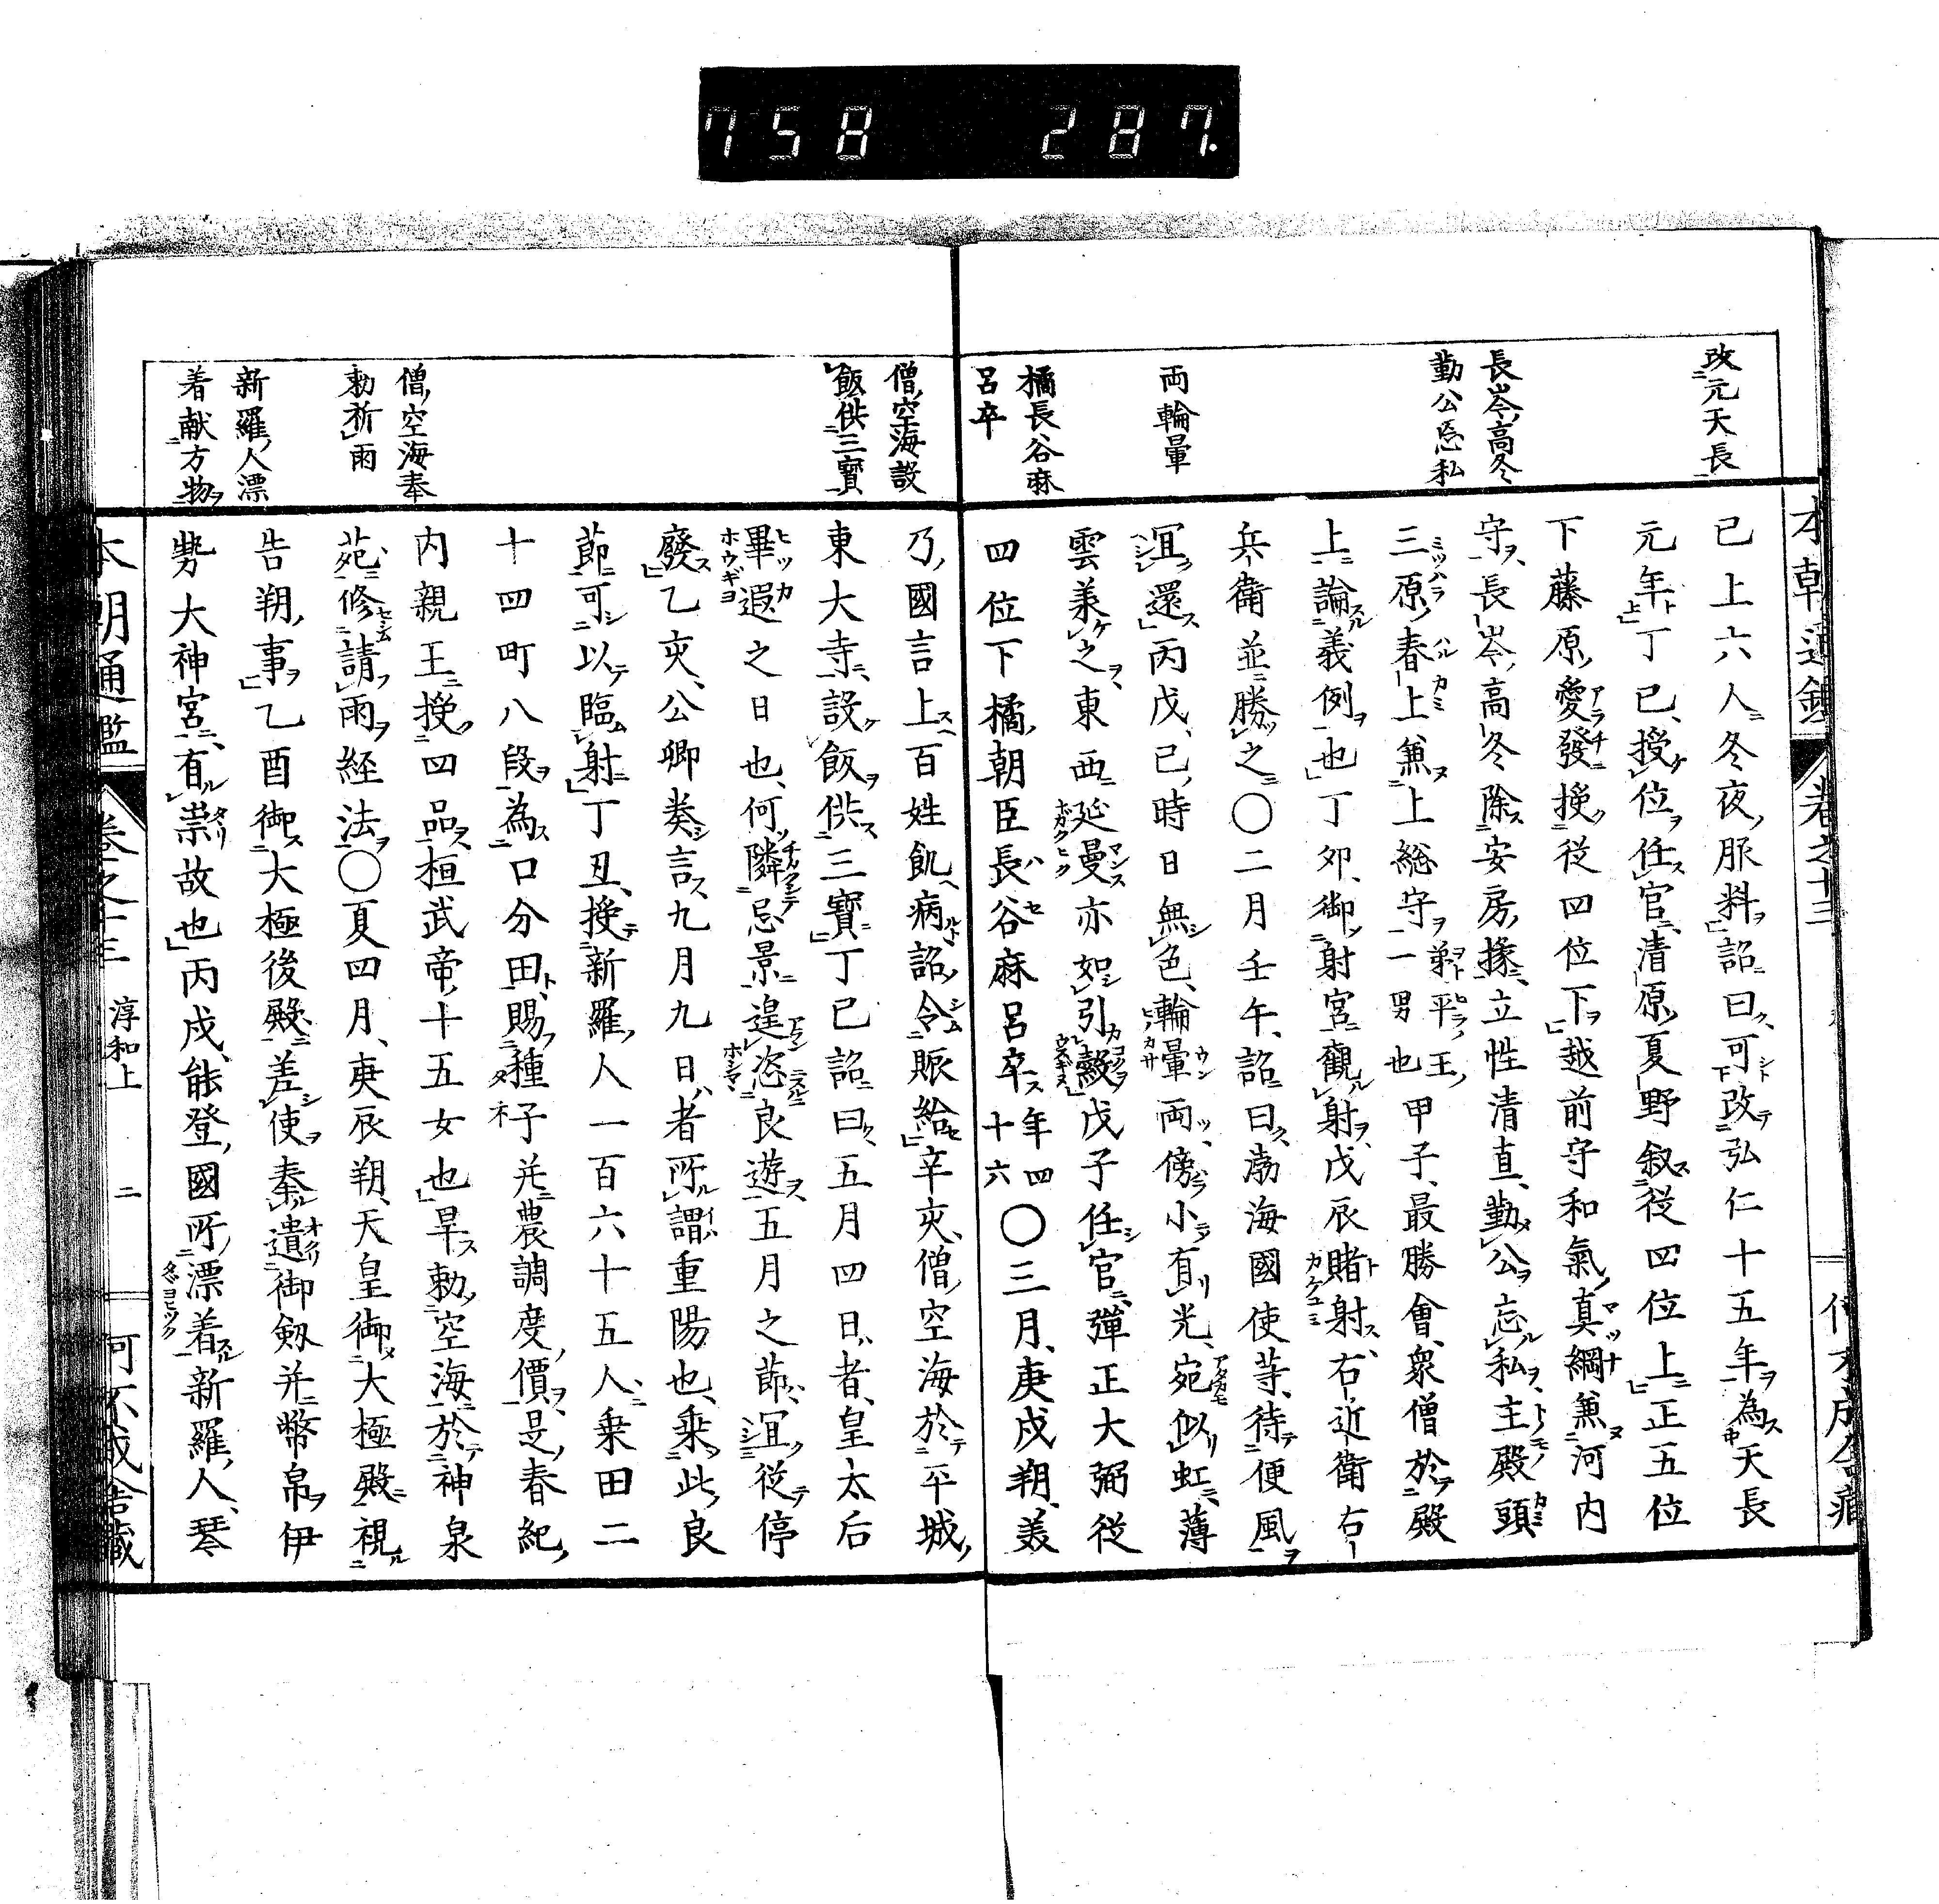 758 287.
改元天長
長岑高冬
勤公忘私
両輪暈
橘長谷麻
呂卒
已上六人冬夜服料詔曰可改弘仁十五年為天長
元年丁巳授位任官清原夏野叙従四位上正五位
下藤原愛發授従四位下越前守和氣真綱兼河内
守長岑高冬除安房掾立性清直勤公忘私主殿頭
三原春上兼上総守弟平王一男也甲子最勝會衆僧於殿
上論義例也丁卯御射宮観射戊辰賭射右近衛右
兵衛並勝之〇二月壬午詔曰渤海國使等待便風
冝還丙戊巳時日無色輪暈両傍小有光宛似虹薄
雲羕之東西延曼亦如引縠戊子任官彈正大弼従
四位下橘朝臣長谷麻呂卒年四十六〇三月庚戌朔美
僧空海設
飯供三寶
僧空海奉
勅祈雨
新羅人漂
着献方物
乃國言上百姓飢病詔令賑給辛亥僧空海於平城
東大寺設飯供三寶丁巳詔曰五月四日者皇太后
畢遐之日也何隣忌景遑恣良遊五月之莭冝従停
廢乙亥公卿奏言九月九日者所謂重陽也乗此良
莭可以臨射丁丑授新羅人一百六十五人乗田二
十四町八段為口分田賜種子并農調度價是春紀
内親王授四品桓武帝十五女也旱勅空海於神泉
苑修請雨経法〇夏四月庚辰朔天皇御大極殿視
告朔事乙酉御大極後殿差使奉遺御劔并幣帛伊
勢大神宮有祟故也丙戌能登國所漂着新羅人琴
本朝通鑑 巻之十三 淳和上 二